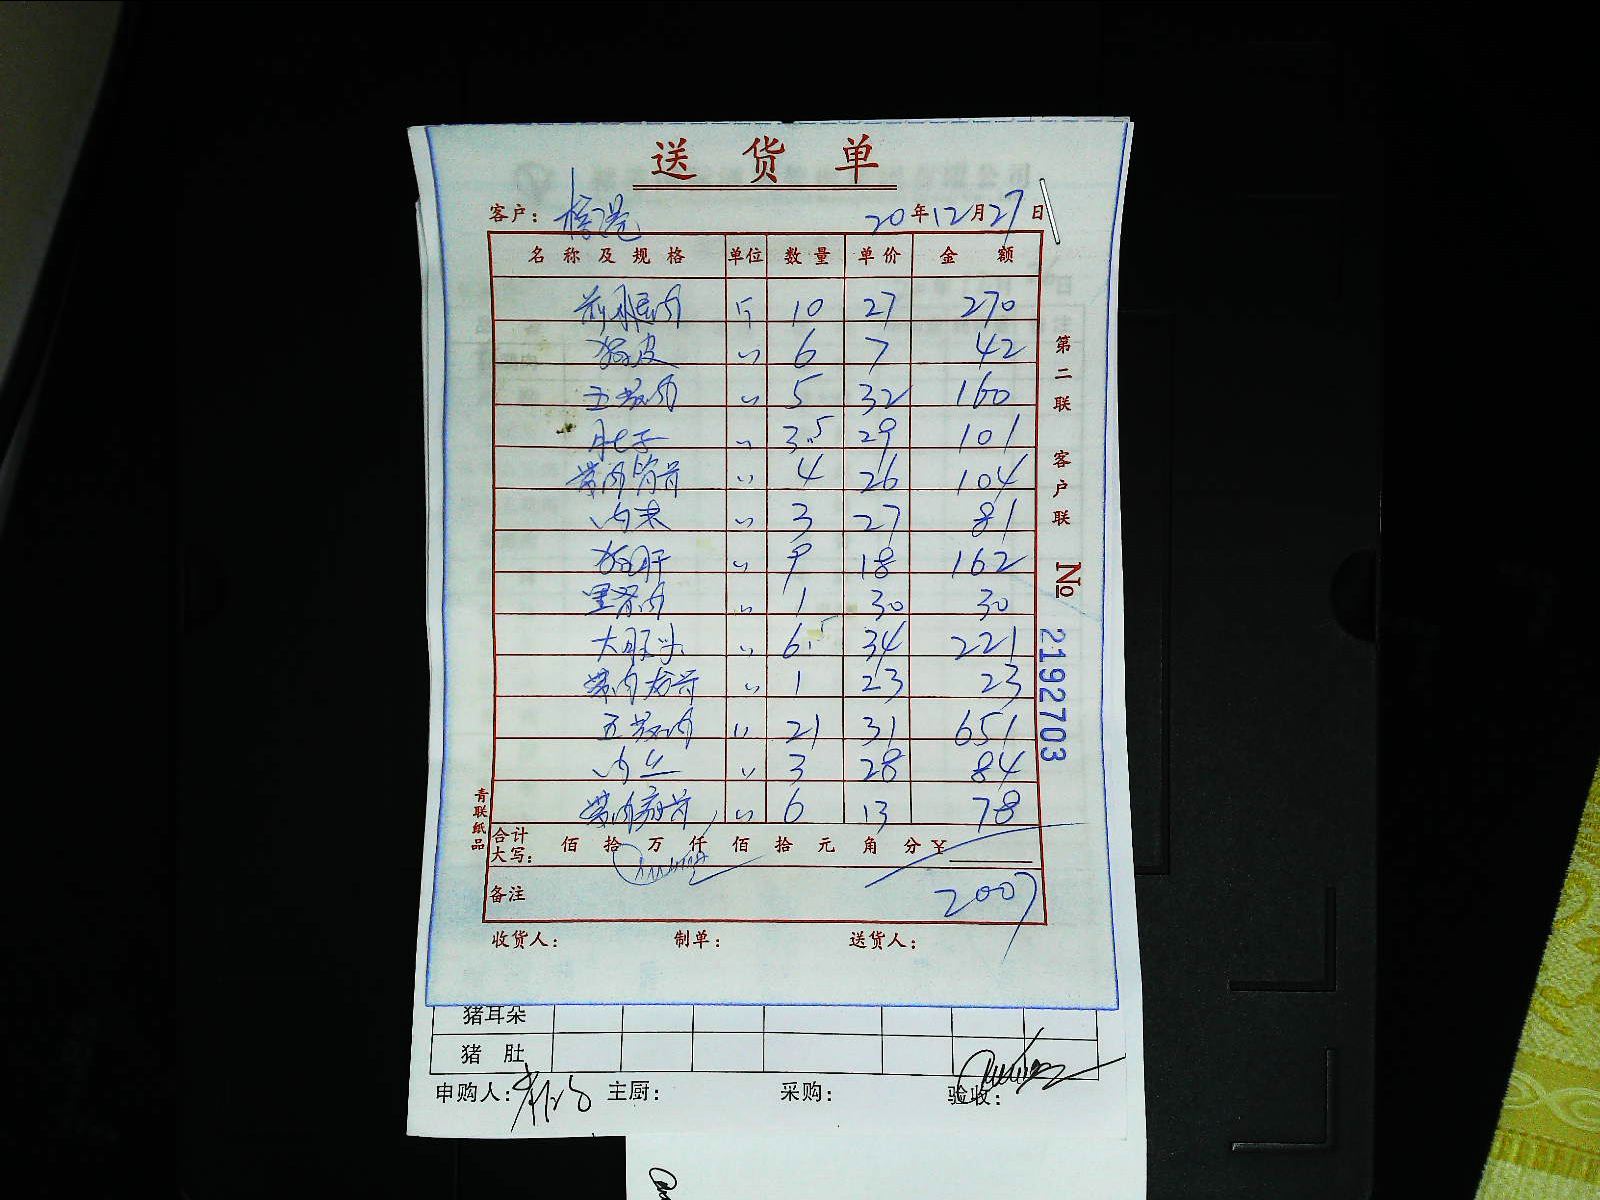 送货单
客户： 20年12月27日
名称及规格 单位 数量 单价 金额
前腿肉 斤 10 27 270
猪皮 〃 6 7 42
五花肉 〃 5 32 160
肚子 〃 3.5 29 101
带肉筒骨 〃 4 26 104
肉末 〃 3 27 81
猪肝 〃 9 18 162
里脊肉 〃 1 30 30
大肠头 〃 6.5 34 221
带肉龙骨 〃 1 23 23
五花肉 〃 21 31 651
肉丝 〃 3 28 84
带肉扇骨 〃 6 13 78
合计大写： 佰 拾 万 仟 佰 拾 元 角 分 ¥
备注 2007
收货人： 制单： 送货人：
第二联 客户联 No 2192703
青联纸品
猪耳朵
猪肚
申购人： 主厨： 采购： 验收：